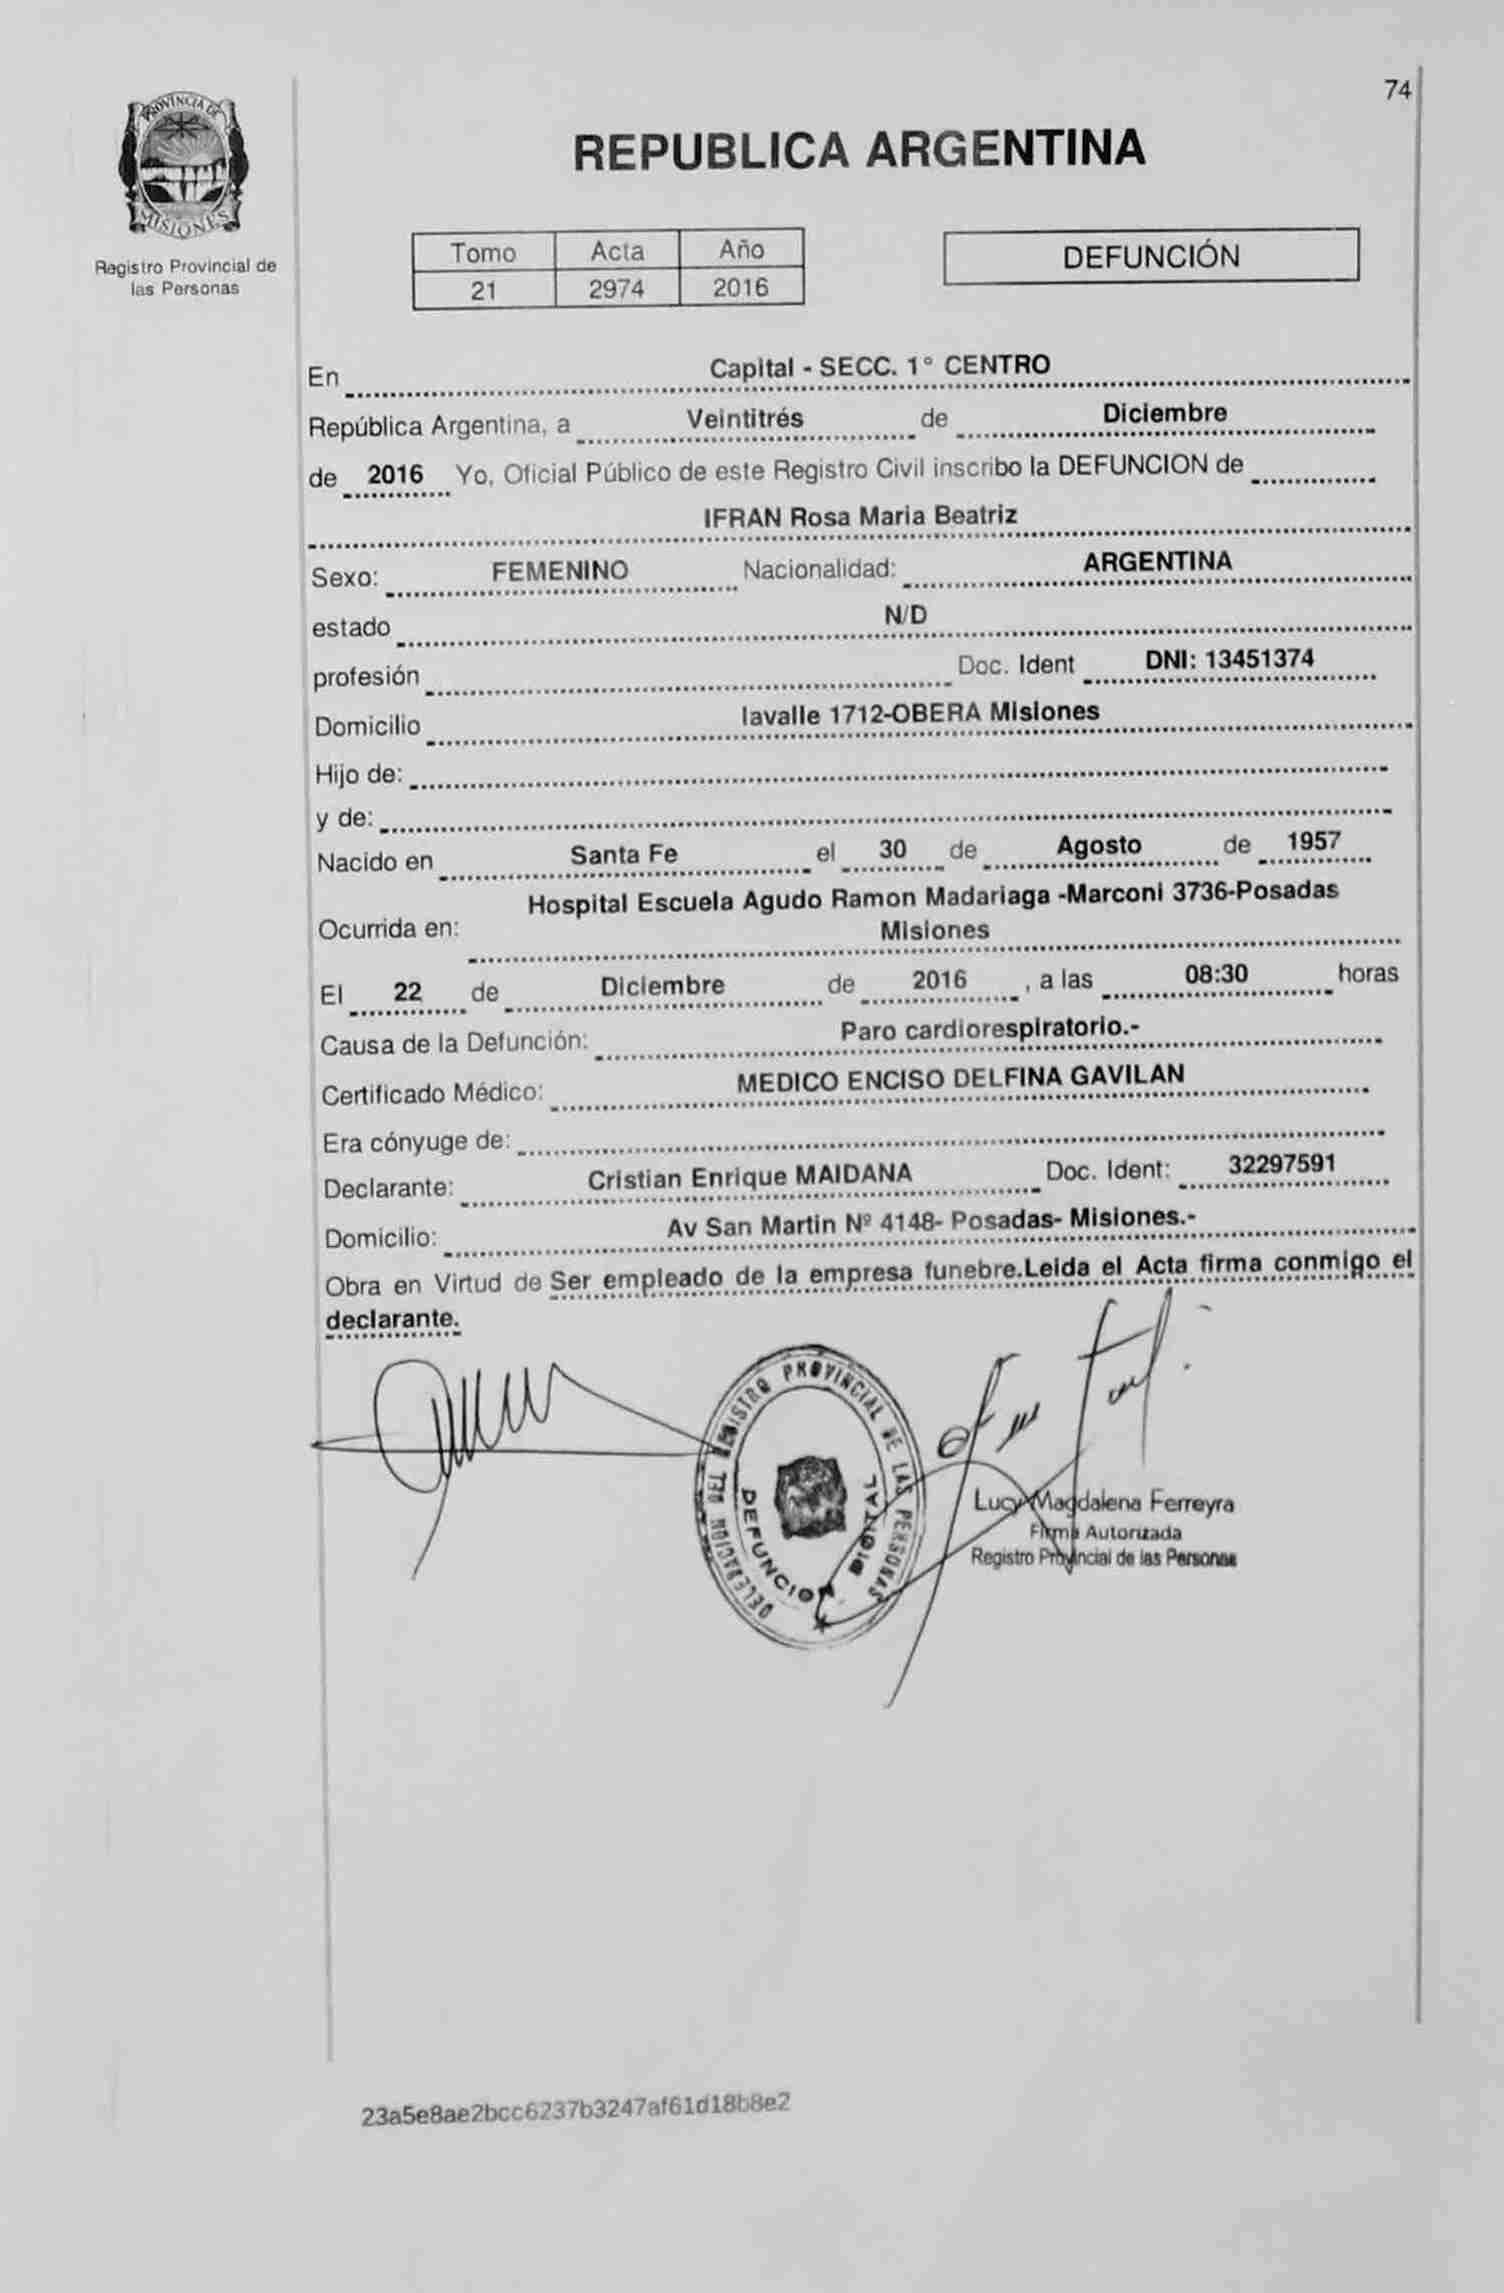 74
PROVINCIA DE
MISIONES
Registro Provincial de
las Personas
REPUBLICA ARGENTINA
Tomo Acta Año
21 2974 2016
DEFUNCIÓN
En Capital - SECC. 1° CENTRO
República Argentina, a Veintitrés de Diciembre
de 2016 Yo, Oficial Público de este Registro Civil inscribo la DEFUNCION de
IFRAN Rosa Maria Beatriz
Sexo: FEMENINO Nacionalidad: ARGENTINA
estado N/D
profesión Doc. Ident DNI: 13451374
Domicilio lavalle 1712-OBERA Misiones
Hijo de:
y de:
Nacido en Santa Fe el 30 de Agosto de 1957
Hospital Escuela Agudo Ramon Madariaga -Marconi 3736-Posadas
Ocurrida en: Misiones
El 22 de Diciembre de 2016 , a las 08:30 horas
Causa de la Defunción: Paro cardiorespiratorio.-
Certificado Médico: MEDICO ENCISO DELFINA GAVILAN
Era cónyuge de:
Declarante: Cristian Enrique MAIDANA Doc. Ident: 32297591
Domicilio: Av San Martin Nº 4148- Posadas- Misiones.-
Obra en Virtud de Ser empleado de la empresa funebre.Leida el Acta firma conmigo el
declarante.
DELEGACION DEL REGISTRO PROVINCIAL DE LAS PERSONAS
DEFUNCION DIGITAL
Lucy Magdalena Ferreyra
Firma Autorizada
Registro Provincial de las Personas
23a5e8ae2bcc6237b3247af61d18b8e2